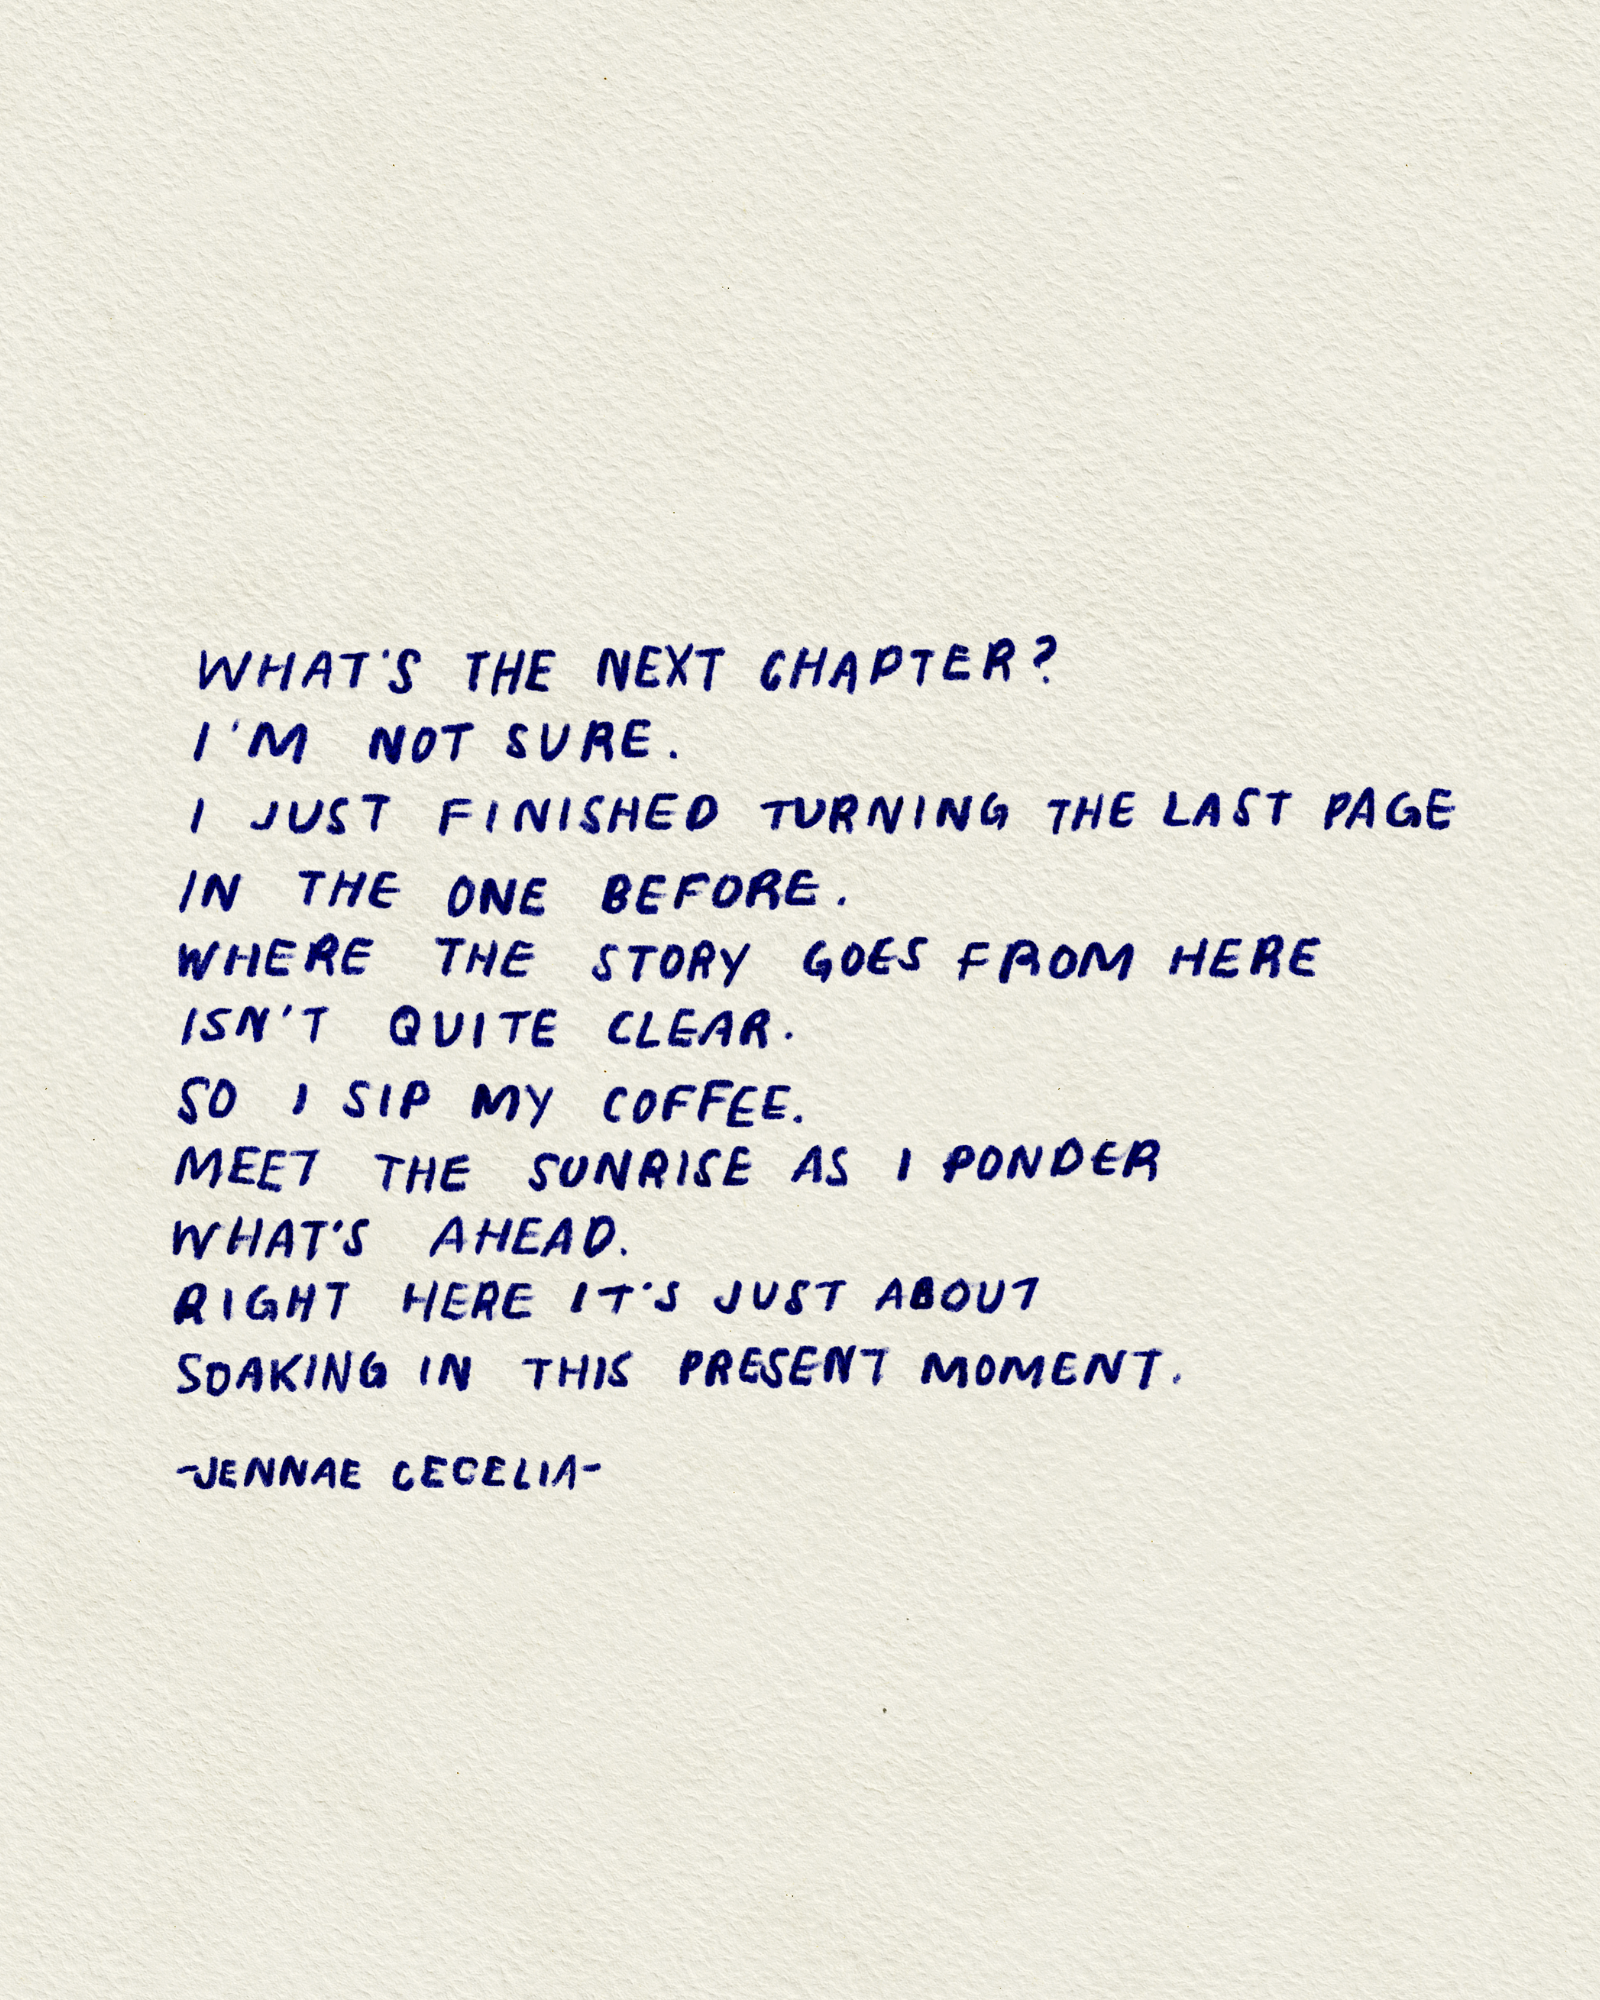 WHAT'S THE NEXT CHAPTER?
I'M NOT SURE.
I JUST FINISHED TURNING THE LAST PAGE
IN THE ONE BEFORE.
WHERE THE STORY GOES FROM HERE
ISN'T QUITE CLEAR.
SO I SIP MY COFFEE.
MEET THE SUNRISE AS I PONDER
WHAT'S AHEAD.
RIGHT HERE IT'S JUST ABOUT
SOAKING IN THIS PRESENT MOMENT.
-JENNAE CECELIA-